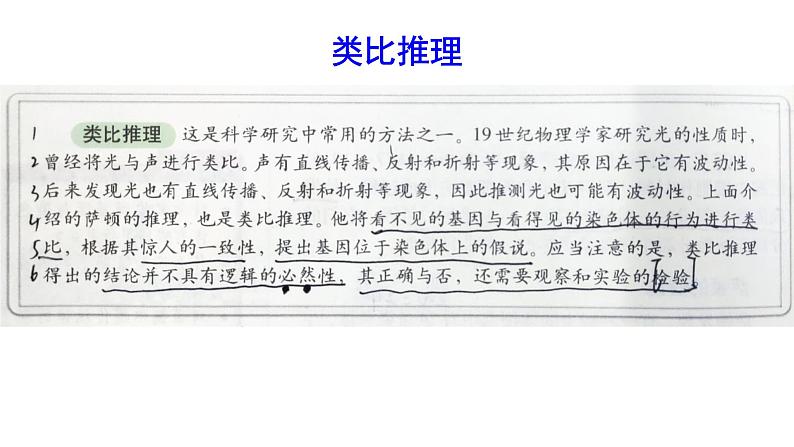 类比推理
1 类比推理 这是科学研究中常用的方法之一。19世纪物理学家研究光的性质时，
2 曾经将光与声进行类比。声有直线传播、反射和折射等现象，其原因在于它有波动性。
3 后来发现光也有直线传播、反射和折射等现象，因此推测光也可能有波动性。上面介
4 绍的萨顿的推理，也是类比推理。他将看不见的基因与看得见的染色体的行为进行类
5 比，根据其惊人的一致性，提出基因位于染色体上的假说。应当注意的是，类比推理
6 得出的结论并不具有逻辑的必然性，其正确与否，还需要观察和实验的检验。